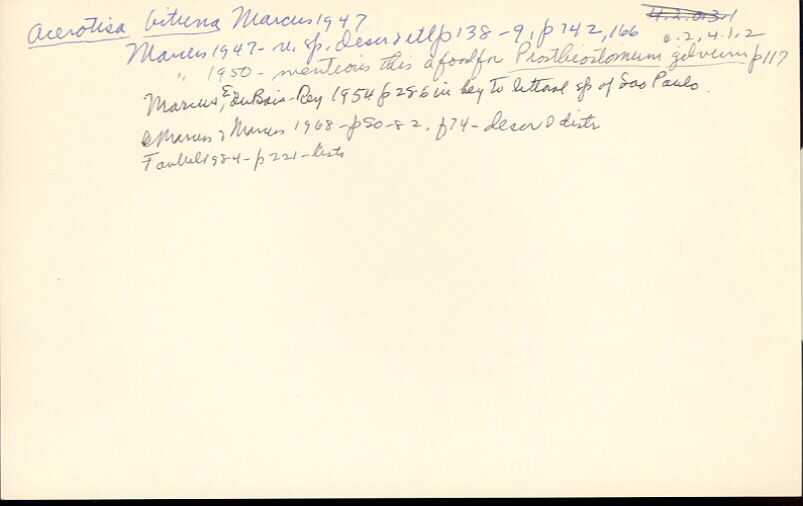 Acerotisa bituna Marcus 1947
4.2.0.3.1
Marcus 1947 - n. sp. descr & ill p 138-9, p 142, 166
0.2, 4.1.2
" 1950 - mentions this a food for Prosthiostomum gilvum p 117
Marcus, E, duBois-Rey 1954 p 286 in key to littoral sp of Sao Paulo.
Marcus & Marcus 1968 - p 80-82. p 74 - descr & distr
Faubel 1984 - p 221 - lists